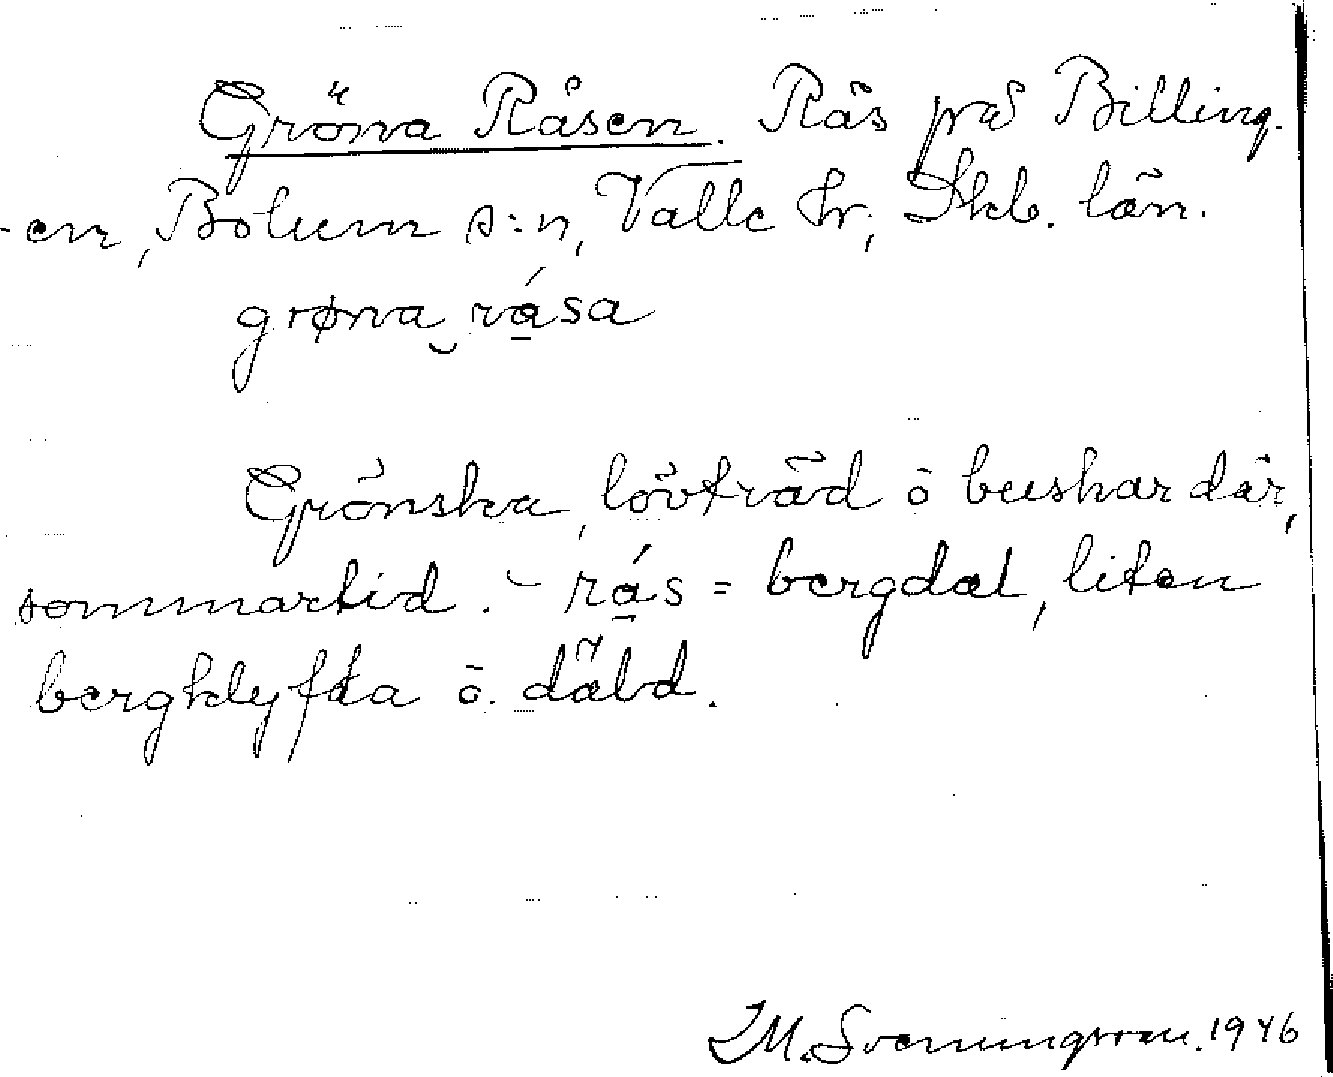 Gröna Råsen. Rås på Billing-
en, Bolum s:n, Valle hr, Skb. län.
grøna‿rá̱sa
Grönska, lövträd o buskar där,
sommartid. – rá̱s = bergdal, liten
bergklyfta o. däld.
M. Sveningsson. 1946